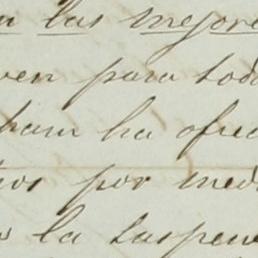 las mejore
ven para toda
ham ha ofrec
tos por medi
la suspen